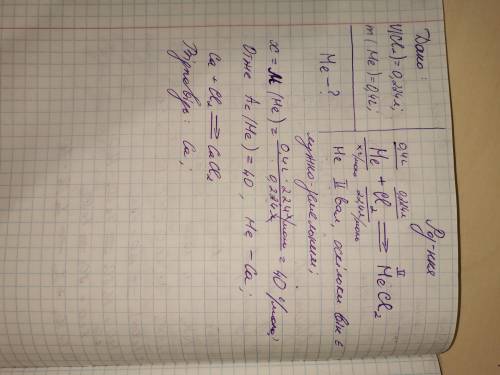 Дано:
V(Cl₂)=0,224л;
m(Me)=0,4г;
Me-?
Рз-ння
0,4г 0,224л II
Me + Cl₂ = MeCl₂
x г/моль 22,4л/моль
Me II вал, оскільки він є
лужно-земельним;
x = M(Me) = 0,4г · 22,4л/моль / 0,224л = 40 г/моль;
Отже Ar(Me) = 40, Me - Ca;
Ca + Cl₂ = CaCl₂
Відповідь: Ca;